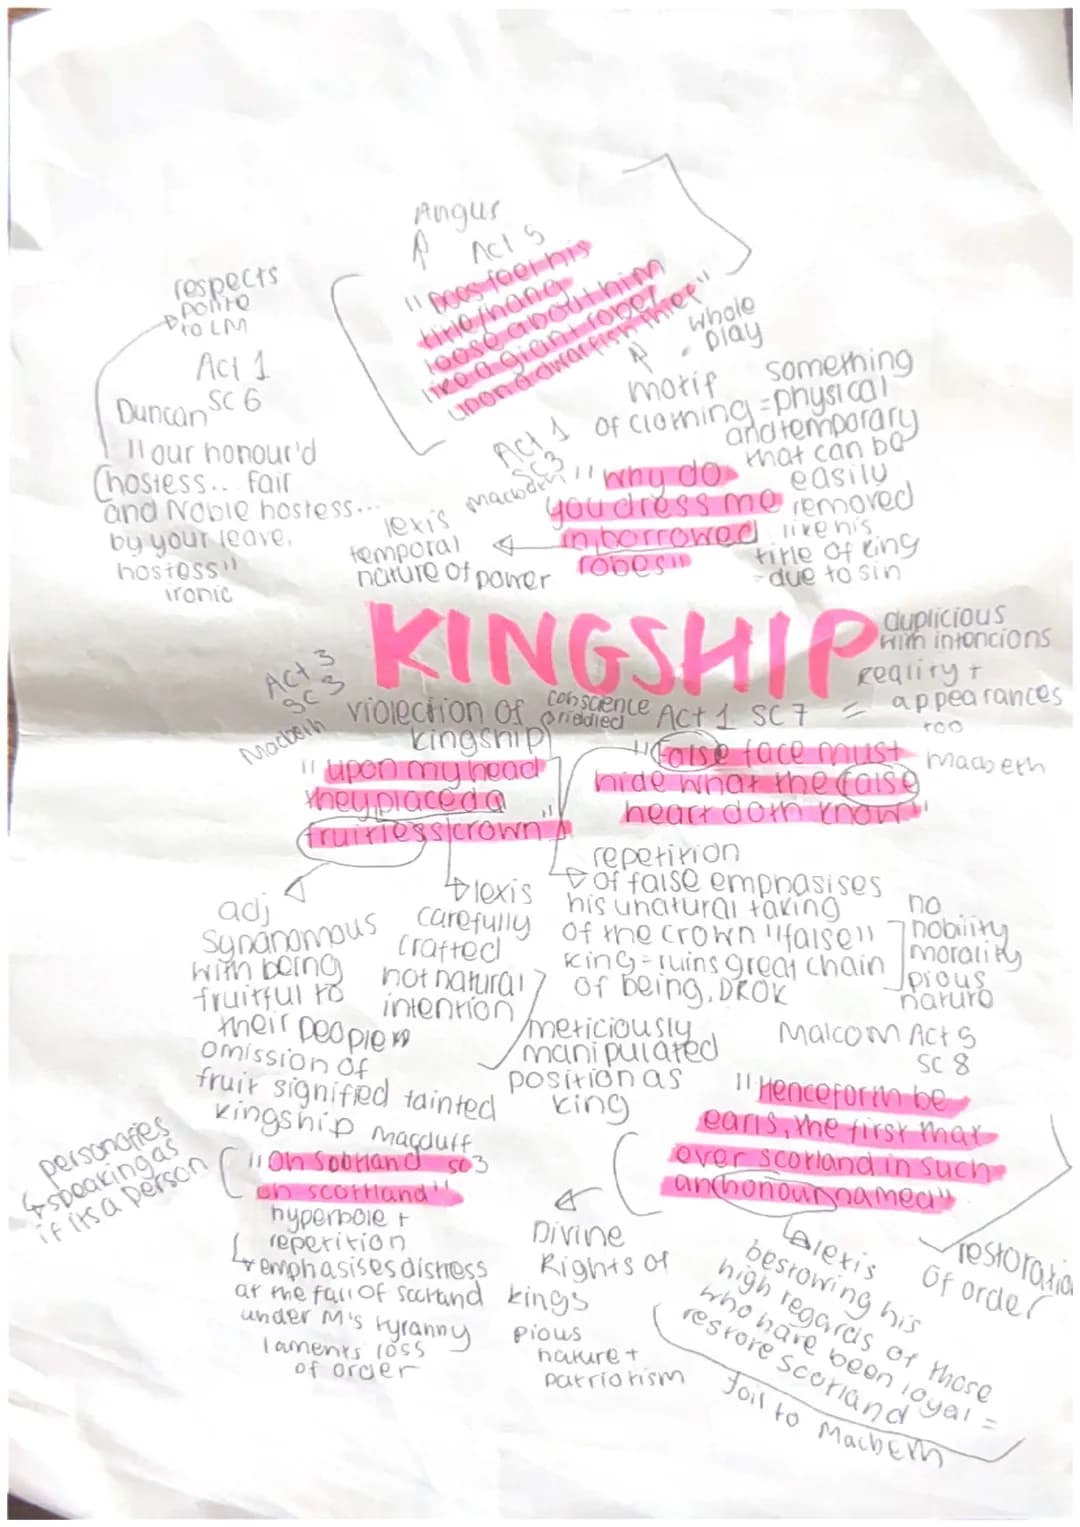 Angus
Act 5
"Does feel his
title/hang
loose about him
like a giant robe/
upon a dwarfish thief"
whole
play
motif
of clothing =
something
physical
and temporary
that can be
easily
removed
like his
title of king
- due to sin
respects
polite
to LM
Act 1
SC 6
Duncan
"our honour'd
hostess... fair
and Noble hostess...
by your leave,
hostess"
ironic
Act 1
SC3
Macbeth
"why do
you dress me
in borrowed
robes"
lexis
temporal
nature of power
KINGSHIP
duplicious
with intencions
reality +
= appearances
too
Act 3
SC 3
Macbeth
violection of
kingship
"upon my head
they placed a
fruitless crown"
conscience
Act 1 SC 7
Macbeth
"false face must
hide what the false
heart doth know"
adj
synanomous
with being
fruitful to
their people
omission of
fruit signified tainted
kingship
lexis
carefully
crafted
not natural
intention
meticiously
manipulated
position as
king
repetition
of false emphasises
his unatural taking
of the crown "false"
king = ruins great chain
of being, DROK
no
nobility
morality
pious
nature
Malcom Act 5
SC 8
"Henceforth be
earls, the first that
ever scotland in such
an honour named"
restoratio
of order
lexis
bestowing his
high regards of those
who have been loyal =
restore Scotland
foil to Macbeth
Macduff
SC3
"Oh Scotland
oh scottland"
personofies
speaking as
if its a person
hyperbole +
repetition
emphasises distress
at the fall of scotland
under M's tyranny
laments loss
of order
Divine
Rights of
kings
pious
nature +
patriotism